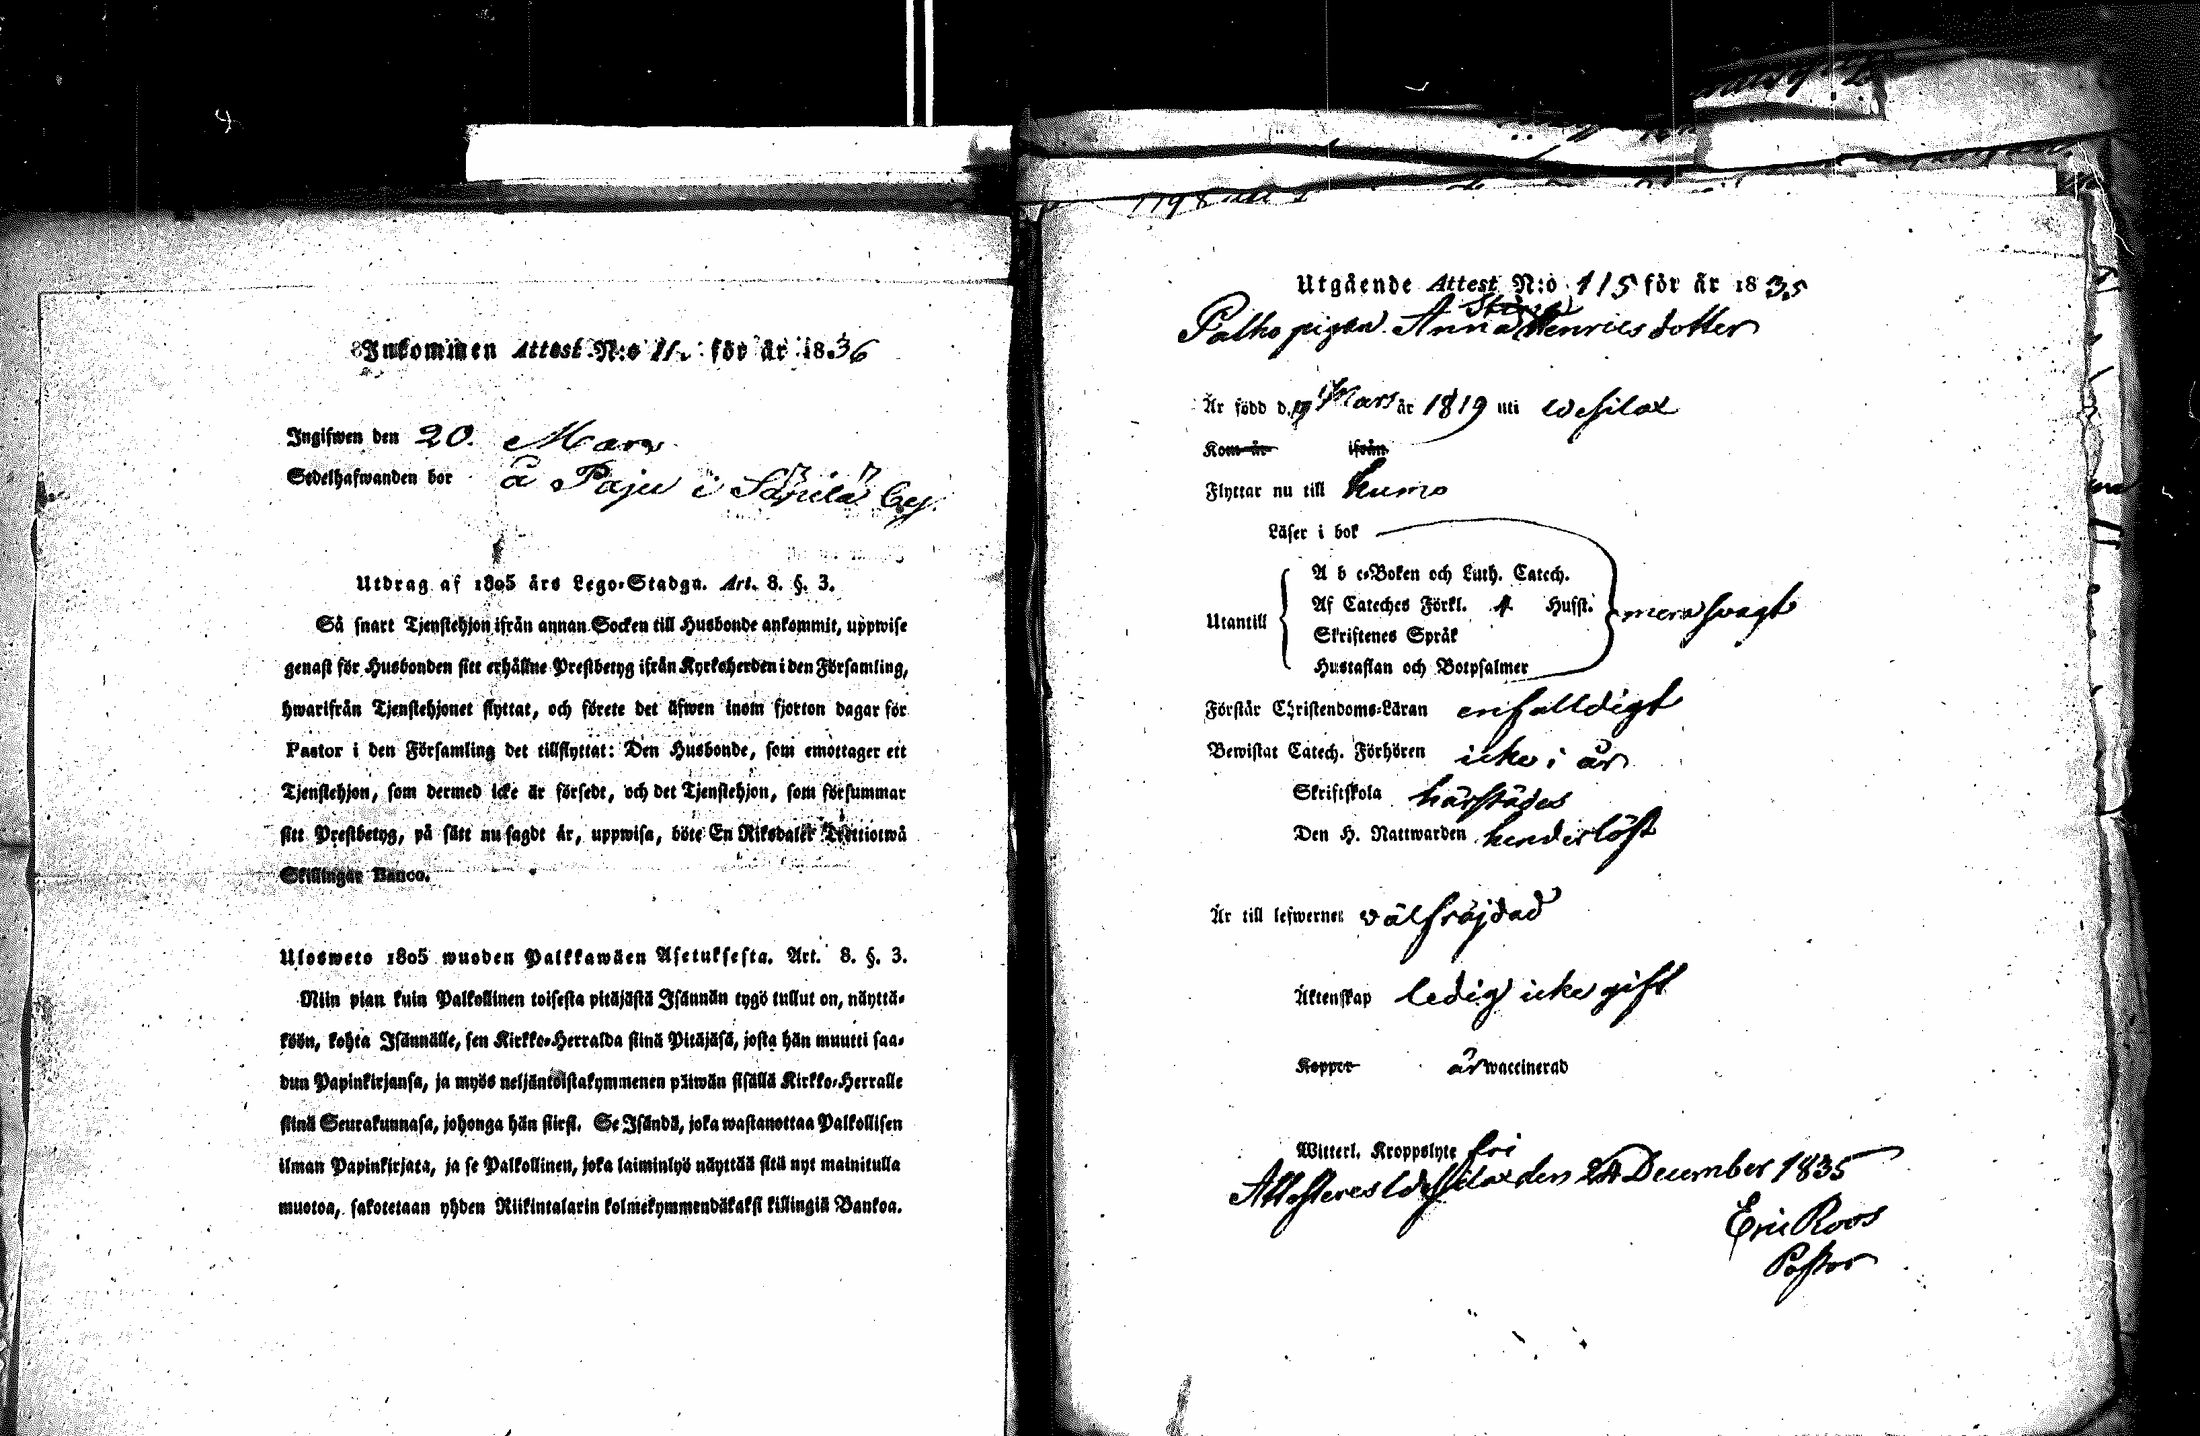 1798
Inkommen Attest N:o 11. för år 1836
Ingifwen den 20. Mars
Sedelhafwanden bor å Paju i Sänilä by.
Utdrag af 1805 års Lego-Stadgn. Art. 8. §. 3.
Så snart Tjenstehjon ifrån annan Socken till Husbonde ankommit, uppwise
genast för Husbonden sitt erhållne Prestbetyg ifrån Kyrkoherden i den Församling,
hwarifrån Tjenstehjonet flyttat, och förete det äfwen inom fjorton dagar för
Pastor i den Församling det tillflyttat: Den Husbonde, som emottager ett
Tjenstehjon, som dermed icke är försedt, och det Tjenstehjon, som försummar
sitt Prestbetyg, på sätt nu sagdt är, uppwisa, böte En Riksdaler Trettiotwå
Skillingar Banco.
Ulosweto 1805 wuoden Palkkawäen Asetuksesta. Art. 8. §. 3.
Niin pian kuin Palkollinen toisesta pitäjästä Isännän tygö tullut on, näyttä-
köön, kohta Isännälle, sen Kirkko-Herralda siinä Pitäjäsä, josta hän muutti saa-
dun Papinkirjansa, ja myös neljäntoistakymmenen päiwän sisällä Kirkko-Herralle
siinä Seurakunnasa, johonga hän siirsi. Se Isändä, joka wastanottaa Palkollisen
ilman Papinkirjata, ja se Palkollinen, joka laiminlyö näyttää sitä nyt mainitulla
muotoa, sakotetaan yhden Riikintalarin kolmekymmendäkaksi killingiä Bankoa.
Utgående Attest N:o 115 för år 1835
Stina
Palho pigan Anna Henricsdotter
Är född d. 9 Mars år 1819 uti Wesilax
Kom år ifrån
Flyttar nu till Kumo
Läser i bok
Utantill
A b c-Boken och Luth. Catech.
Af Cateches Förkl. 4 Husft.
Skriftenes Språk
Hustaflan och Botpsalmer
mera swagt
Förstår Christendoms-Läran enfalldigt
Bewistat Catech. Förhören icke i år
Skriftskola härstädes
Den H. Nattwarden hinderlöst
Är till lefwernet välfräjdad
Äktenskap ledig icke gift
Koppor är waccinerad
Witterl. Kroppslyte fri
Attesteres Wessilax den 24 December 1835
Eric Roos
Pastor